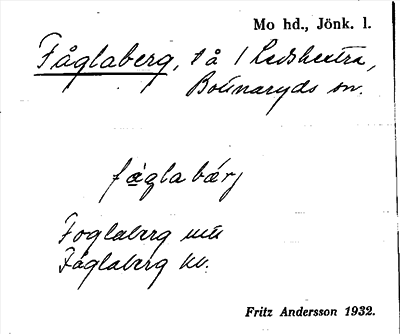 Mo hd., Jönk. l.
Fåglaberg, på
Bottnaryds sn.
fåglabárj
Foglaberg
Fåglaberg kv.
Fritz Andersson 1932.